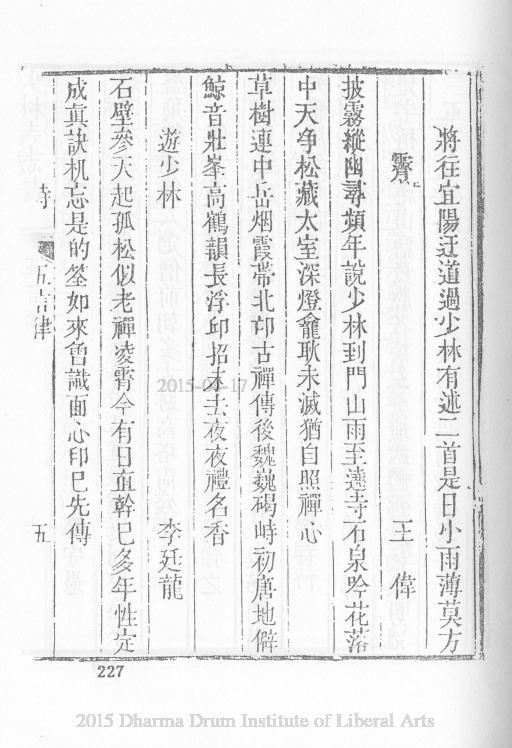 將往宜陽迂道過少林有述二首是日小雨薄莫方
霽 王偉
披霧縱幽尋頻年說少林到門山雨至遶寺石泉吟花落
中天爭松藏太室深燈龕耿未滅猶自照禪心
草樹連中岳烟霞帶北邙古禪傳後魏巍碣峙初唐地僻
鯨音壯峯高鶴韻長浮邱招未去夜夜禮名香
遊少林 李廷龍
石壁參天起孤松似老禪凌霄今有日直幹巳多年性定
成眞訣机忘是的筌如來曾識面心印巳先傳
詩 五言律 五
227
2015-06-17
2015 Dharma Drum Institute of Liberal Arts